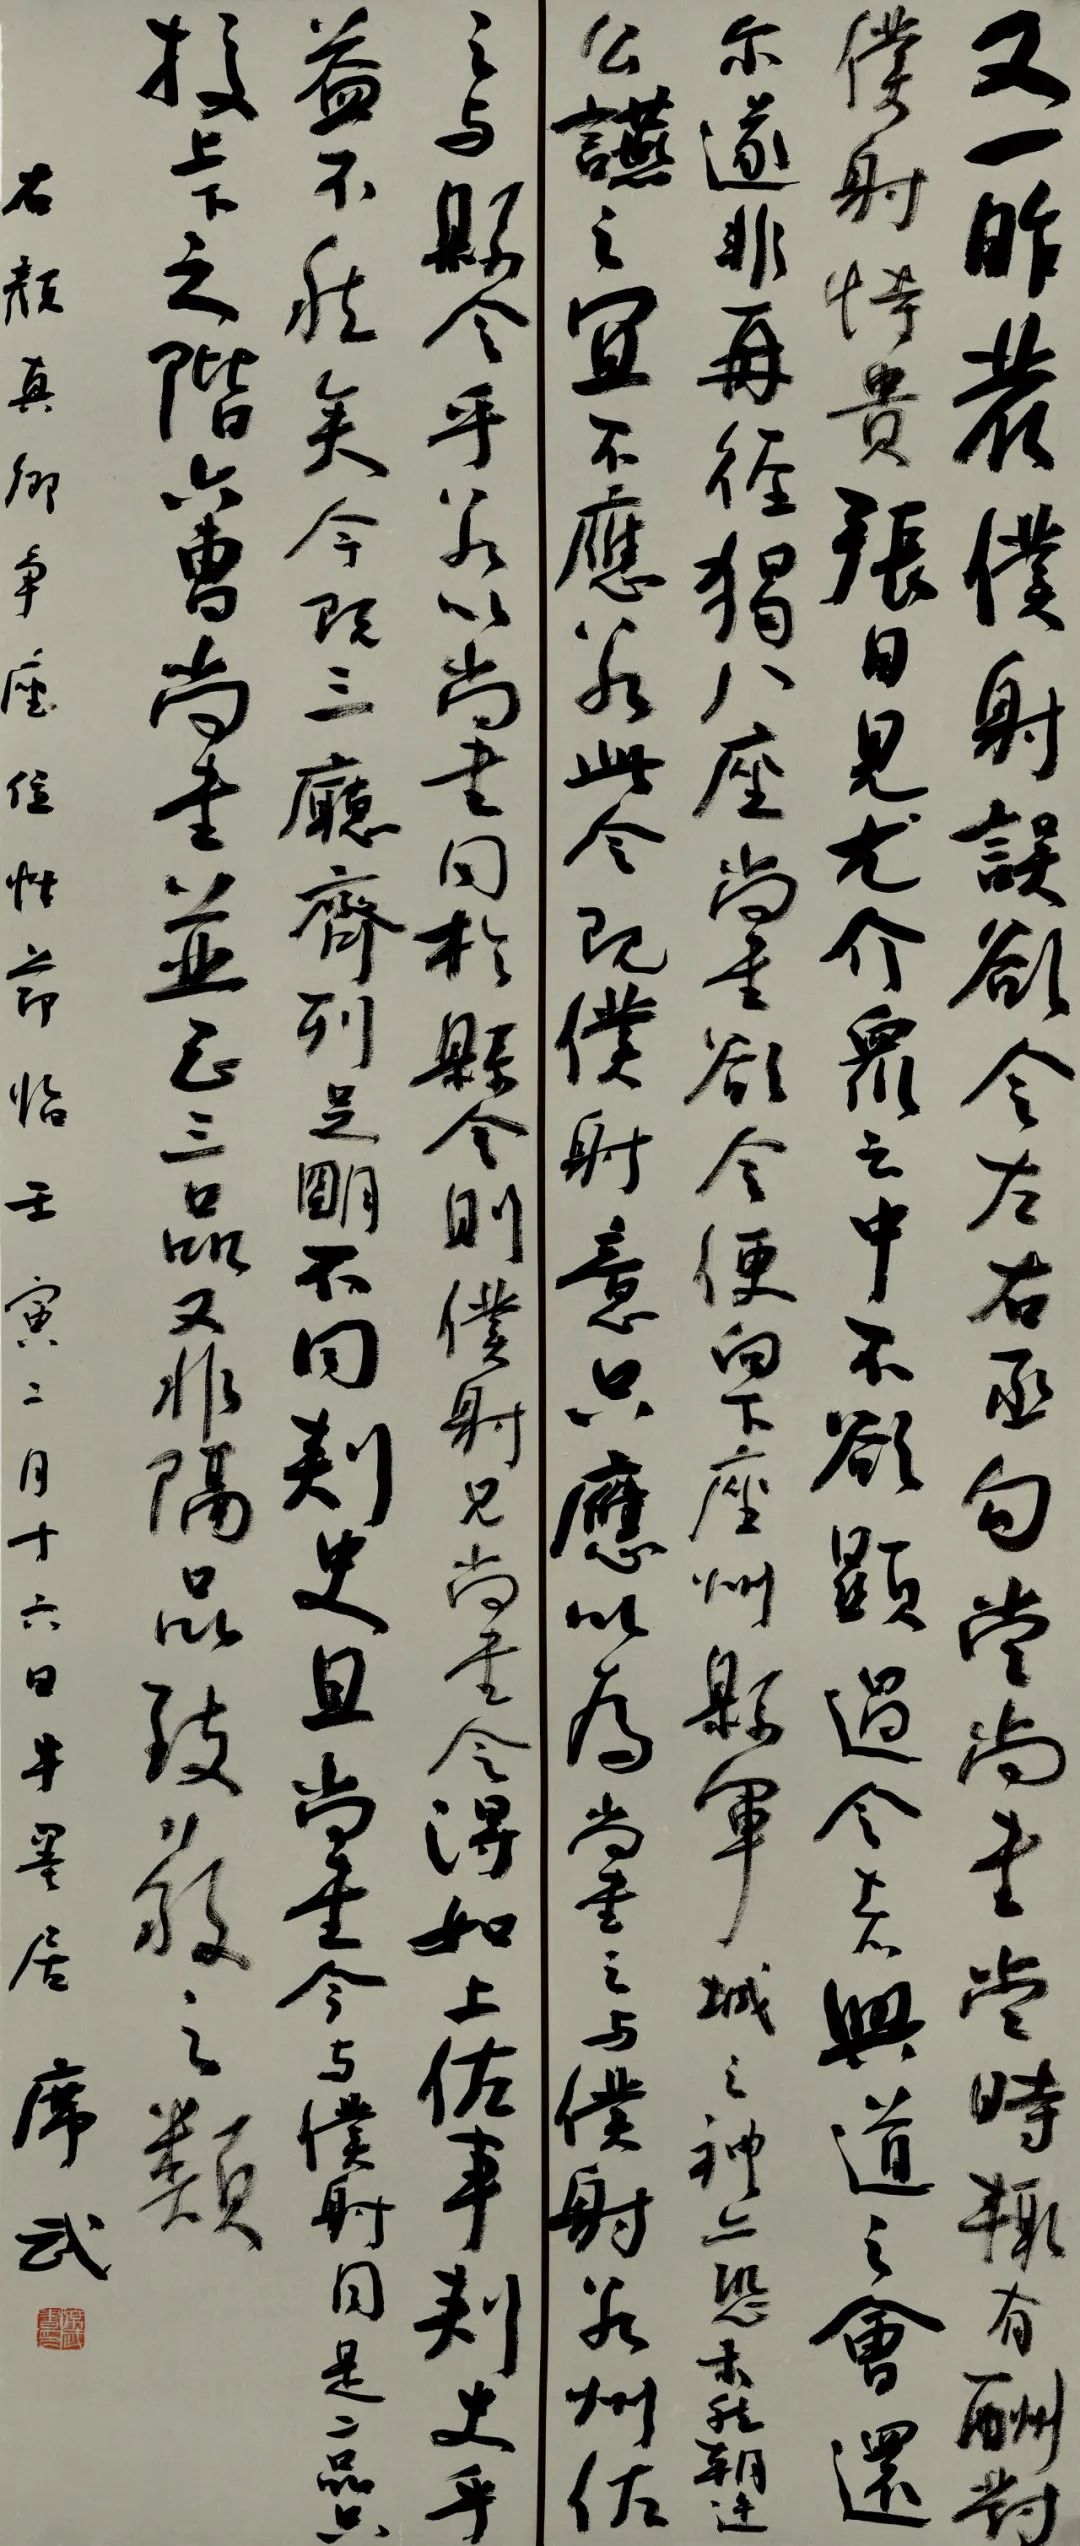 又一昨裴僕射誤欲令左右丞勾當尚書當時輒有酬對
僕射恃貴張目見尤介眾之中不欲顯過今者興道之會還
尔遂非再徑猲八座尚書欲令便向下座州縣軍城之神亦恐未然朝廷
公讌之宜不應若此今既僕射意只應以為尚書之与僕射若州佐
之与縣令乎若以尚書同於縣令則僕射見尚書令得如上佐事刺史乎
益不然矣今既三廳齊列足明不同刺史且尚書令与僕射同是二品只
挍上下之階六曹尚書並正三品又非隔品致敬之類
右顏真卿爭座位帖節臨壬寅二月十六日半墨居 席武